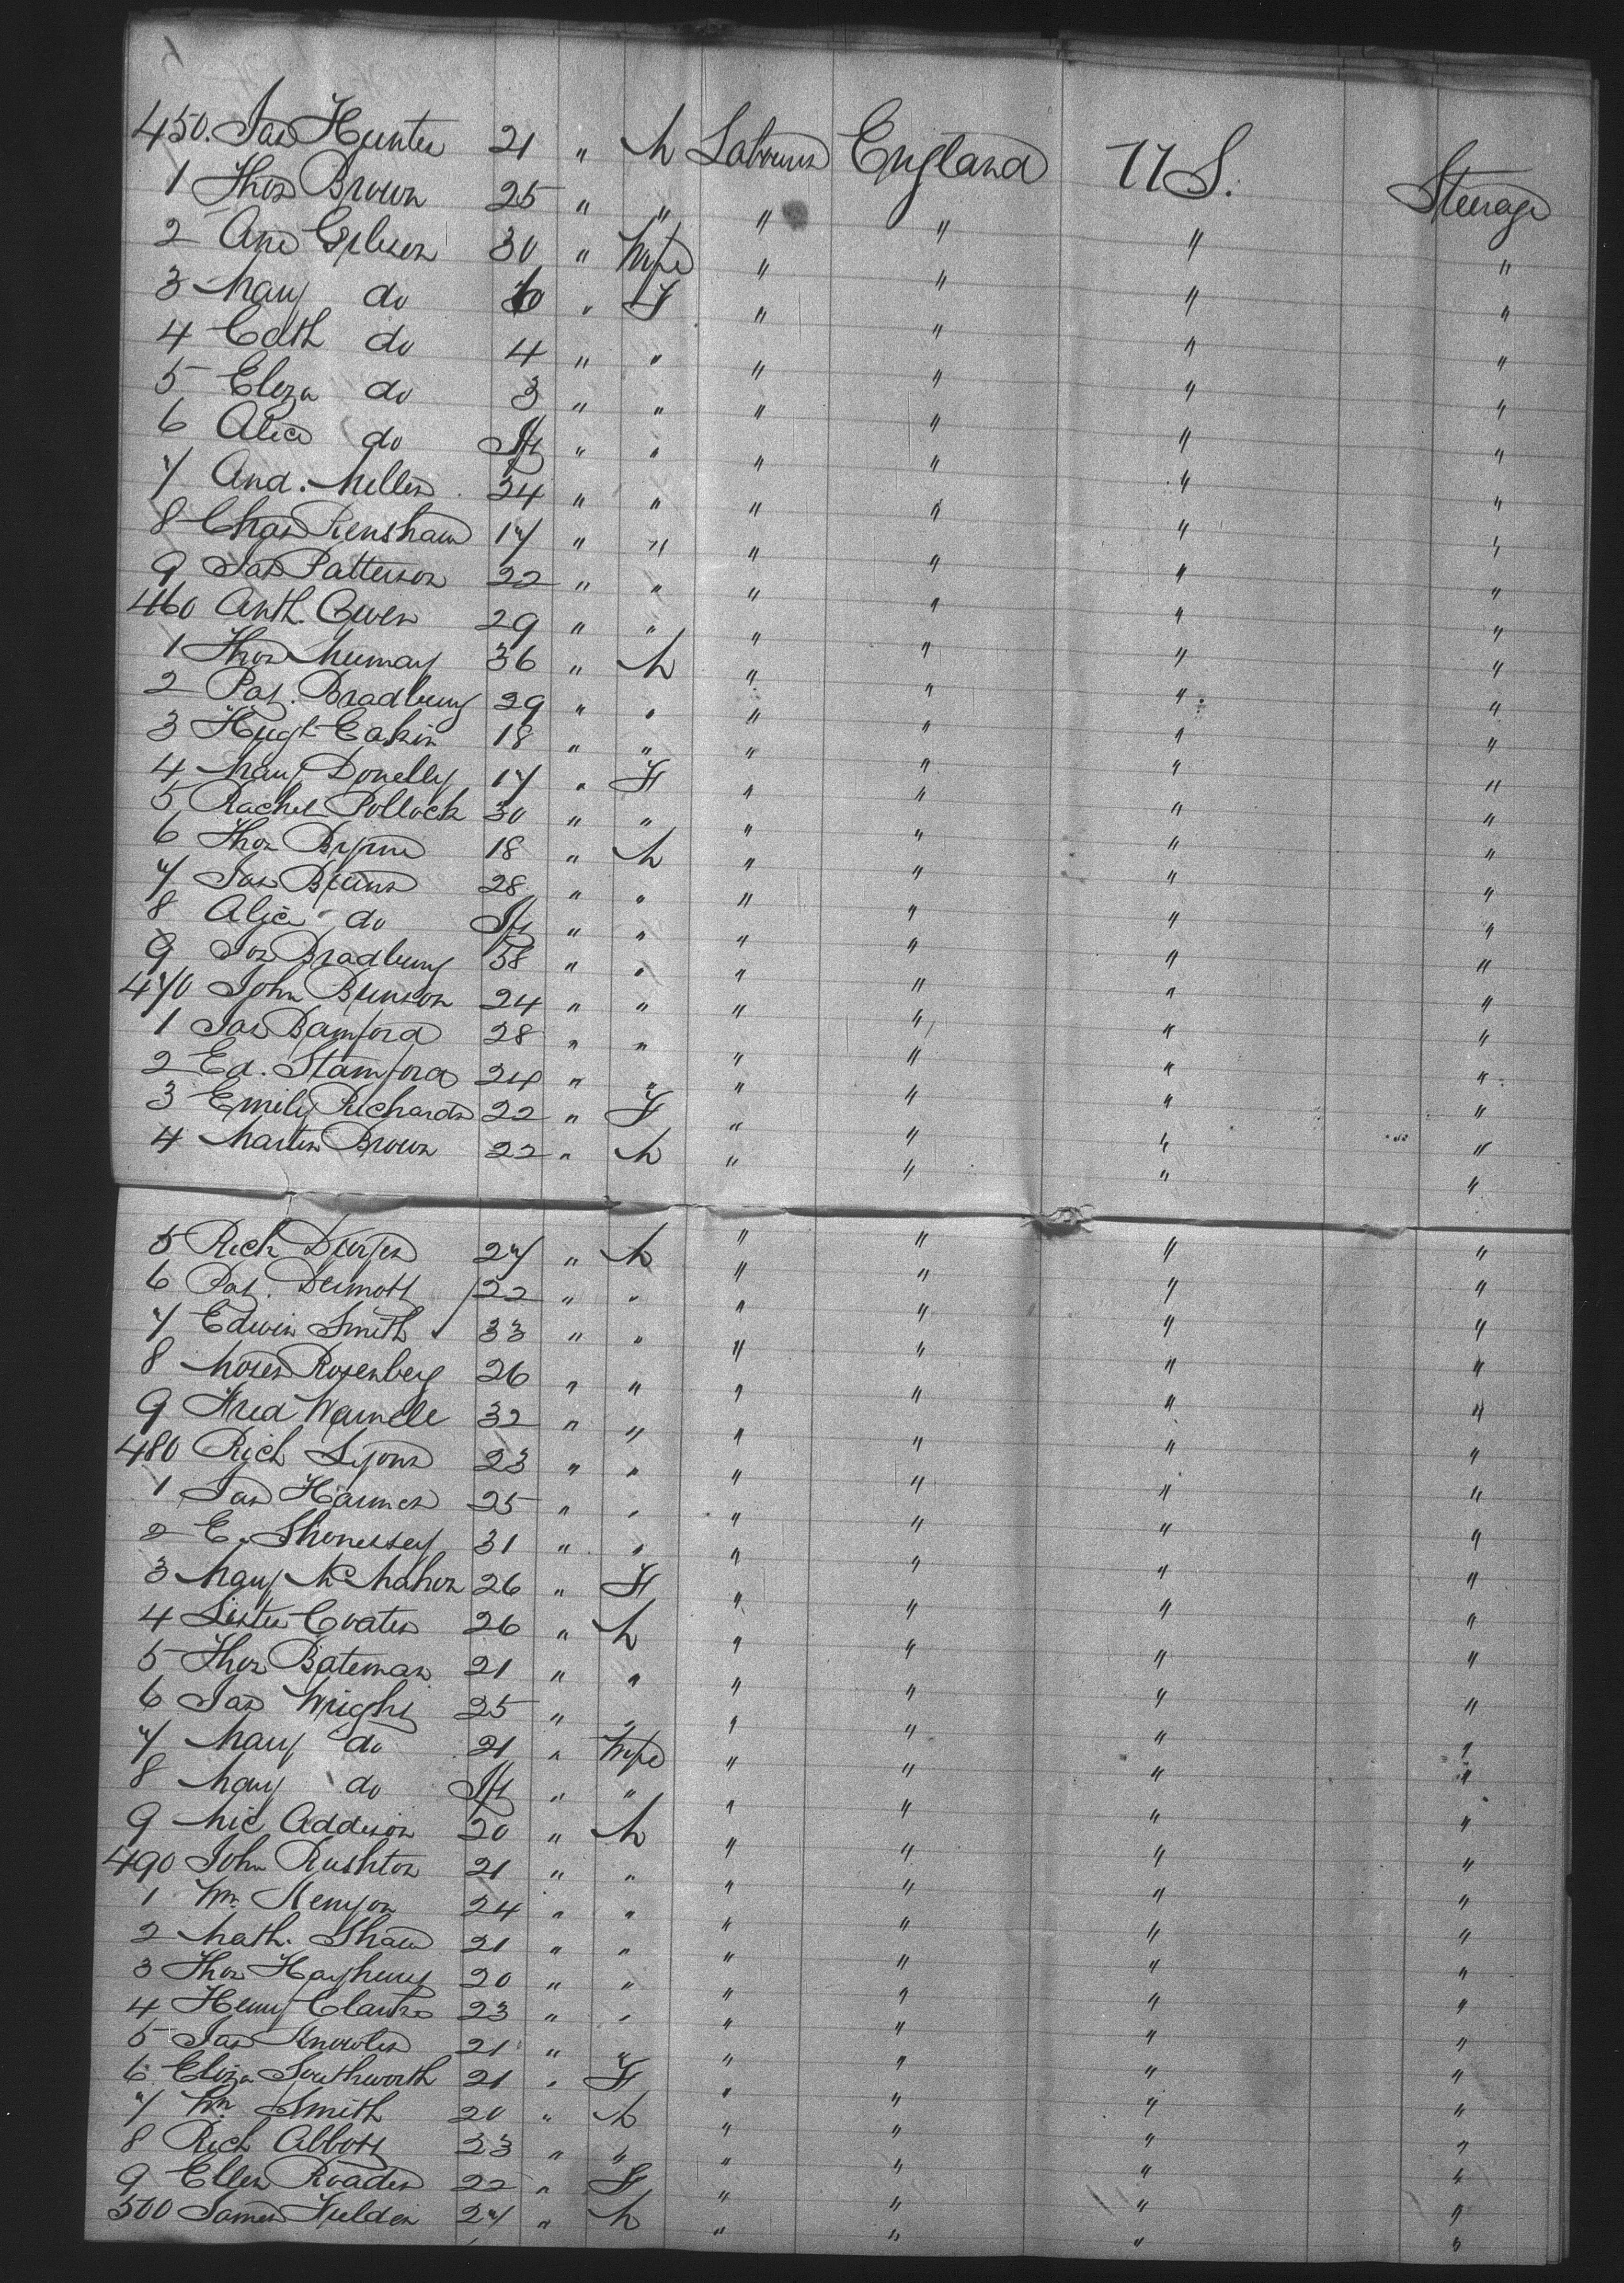 450. Jas Hunter 21 " M Labourer England U S. Steerage
1 Thos Brown 25 " " " " " "
2 Ann Gibson 30 " Wife " " " "
3 Mary do 6 " F " " " "
4 Cath do 4 " " " " " "
5 Eliza do 3 " " " " " "
6 Alice do Inf " " " " " "
7 And. Miller 24 " " " " " "
8 Chas Renshaw 17 " " " " " "
9 Jas Patterson 22 " " " " " "
460 Anth. Owen 29 " " " " " "
1 Thos Murray 36 " M " " " "
2 Pat. Bradbury 29 " " " " " "
3 Hugh Eakin 18 " " " " " "
4 Mary Donelly 17 " F " " " "
5 Rachel Pollock 30 " " " " " "
6 Thos Byrne 18 " M " " " "
7 Jas Burns 28 " " " " " "
8 Alice do Inf " " " " " "
9 Jos Bradbury 38 " " " " " "
470 John Bunson 24 " " " " " "
1 Jas Bamford 28 " " " " " "
2 Ed. Stamford 24 " " " " " "
3 Emily Richards 22 " F " " " "
4 Martin Brown 22 " M " " " "
5 Rich 27 " M " " " "
6 Pat. Dermott 22 " " " " " "
7 Edwin Smith 33 " " " " " "
8 Moses Rosenberg 26 " " " " " "
9 Fred 32 " " " " " "
480 Rich Lyons 23 " " " " " "
1 Jas Harmer 25 " " " " " "
2 E. Shonessey 31 " " " " " "
3 Mary McMahon 26 " F " " " "
4 Lister Coates 26 " M " " " "
5 Thos Bateman 21 " " " " " "
6 Jas Wright 25 " " " " " "
7 Mary do 21 " Wife " " " "
8 Mary do Inf " " " " " "
9 Mic Addison 20 " M " " " "
490 John Rushton 21 " " " " " "
1 Wm Kenyon 24 " " " " " "
2 Math. Shaw 21 " " " " " "
3 Thos Hayhurst 20 " " " " " "
4 Henry Clarke 23 " " " " " "
5 Jas Knowles 21 " " " " " "
6 Eliza Southworth 21 " F " " " "
7 Wm Smith 20 " M " " " "
8 Rich Abbott 23 " " " " " "
9 Ellen Roades 22 " F " " " "
500 James Fielden 27 " M " " " "